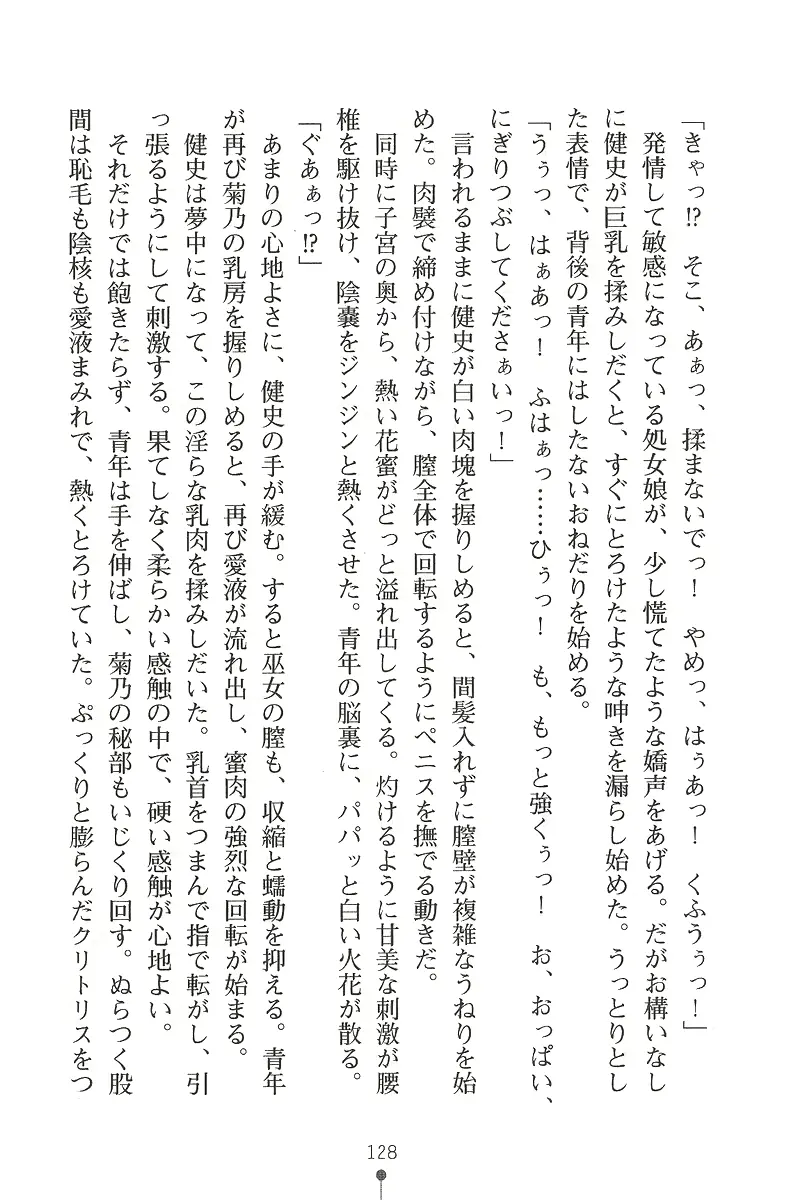 「きゃっ!? そこ、あぁっ、揉まないでっ! やめっ、はぅあっ! くふうぅっ!」
発情して敏感になっている処女娘が、少し慌てたような嬌声をあげる。だがお構いなし
に健史が巨乳を揉みしだくと、すぐにとろけたような呻きを漏らし始めた。うっとりとし
た表情で、背後の青年にはしたないおねだりを始める。
「うぅっ、はぁあっ! ふはぁっ……ひぅっ! も、もっと強くぅっ! お、おっぱい、
にぎりつぶしてくださぁいっ!」
言われるままに健史が白い肉塊を握りしめると、間髪入れずに膣壁が複雑なうねりを始
めた。肉襞で締め付けながら、膣全体で回転するようにペニスを撫でる動きだ。
同時に子宮の奥から、熱い花蜜がどっと溢れ出してくる。灼けるように甘美な刺激が腰
椎を駆け抜け、陰嚢をジンジンと熱くさせた。青年の脳裏に、パパッと白い火花が散る。
「ぐあぁっ!?」
あまりの心地よさに、健史の手が緩む。すると巫女の膣も、収縮と蠕動を抑える。青年
が再び菊乃の乳房を握りしめると、再び愛液が流れ出し、蜜肉の強烈な回転が始まる。
健史は夢中になって、この淫らな乳肉を揉みしだいた。乳首をつまんで指で転がし、引
っ張るようにして刺激する。果てしなく柔らかい感触の中で、硬い感触が心地よい。
それだけでは飽きたらず、青年は手を伸ばし、菊乃の秘部もいじくり回す。ぬらつく股
間は恥毛も陰核も愛液まみれで、熱くとろけていた。ぷっくりと膨らんだクリトリスをつ
128